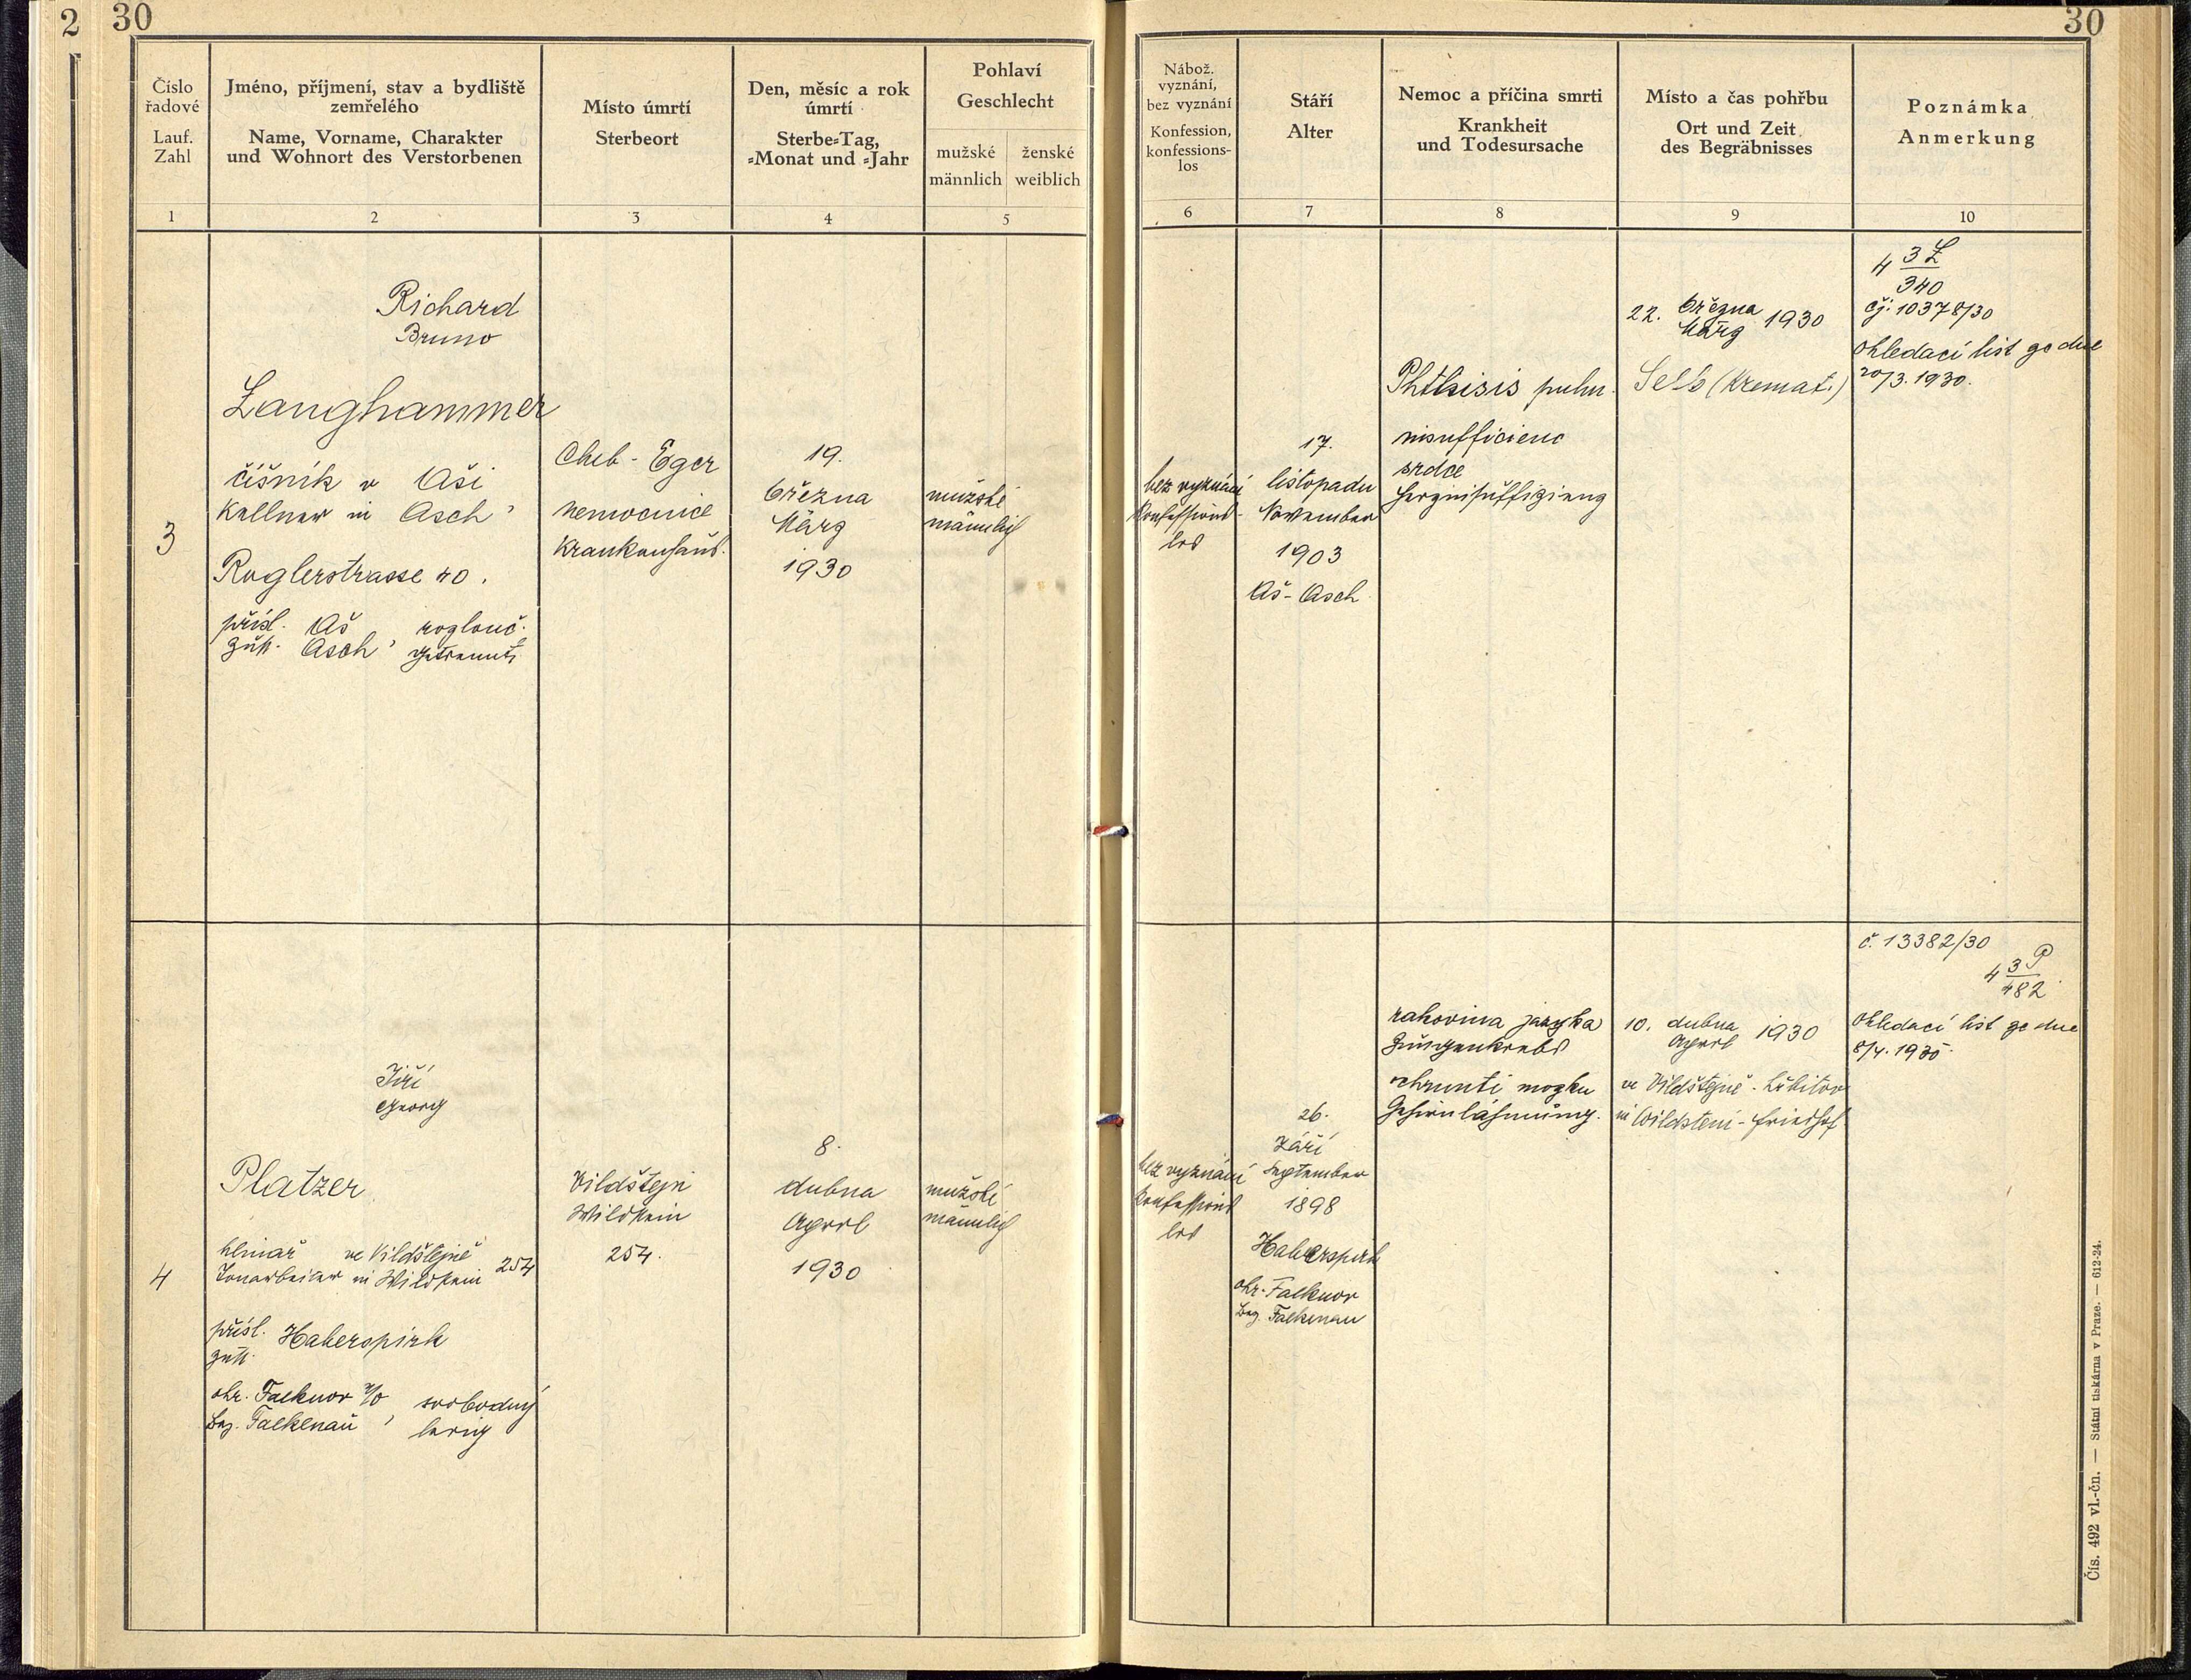 2
30
30
Číslo
řadové
Lauf.
Zahl
Jméno, příjmení, stav a bydliště
zemřelého
Name, Vorname, Charakter
und Wohnort des Verstorbenen
Místo úmrtí
Sterbeort
Den, měsíc a rok
úmrtí
Sterbe=Tag,
=Monat und =Jahr
Pohlaví
Geschlecht
mužské
männlich
ženské
weiblich
Nábož.
vyznání,
bez vyznání
Konfession,
konfessions-
los
Stáří
Alter
Nemoc a příčina smrti
Krankheit
und Todesursache
Místo a čas pohřbu
Ort und Zeit
des Begräbnisses
Poznámka
Anmerkung
1
2
3
4
5
6
7
8
9
10
3
Richard
Bruno
Langhammer
číšník v Aši
Kellner in Asch,
Roglerstrasse 40.
přísl. Aš
zust. Asch,
rozlouč.
getrennt
Cheb - Eger
nemocnice
Krankenhaus.
19.
března
März
1930
mužské
männlich
bez vyznání
Konfessions-
los
17.
listopadu
November
1903
Aš - Asch
Phthisis pulm.
insufficienc
srdce
Herzinsuffizienz
22. března
März 1930
Selb (Kremat.)
4 3 L
340
čj: 10378/30
Ohledací list ze dne
20/3. 1930.
4
Jiří
Georg
Platzer
hlinař ve Vildštejně
Tonarbeiter in Wildstein 254
přísl. Haberspirk
zust.
okr. Falknov n/O
Bez. Falkenau,
svobodný
ledig
Vildštejn
Wildstein
254.
8.
dubna
April
1930
mužské
männlich
bez vyznání
Konfessions
los
26.
Září
September
1898
Haberspirk
okr. Falknov
Bez. Falkenau
rakovina jazyka
Zungenkrebs
ochrnutí mozku
Gehirnlähmung.
10. dubna
April 1930
ve Vildštejně - hřbitov
in Wildstein - Friedhof
č. 13382/30
4 3 P
482
Ohledací list ze dne
8/4. 1930.
Čís. 492 vl.-čn. — Státní tiskárna v Praze. — 612-24.